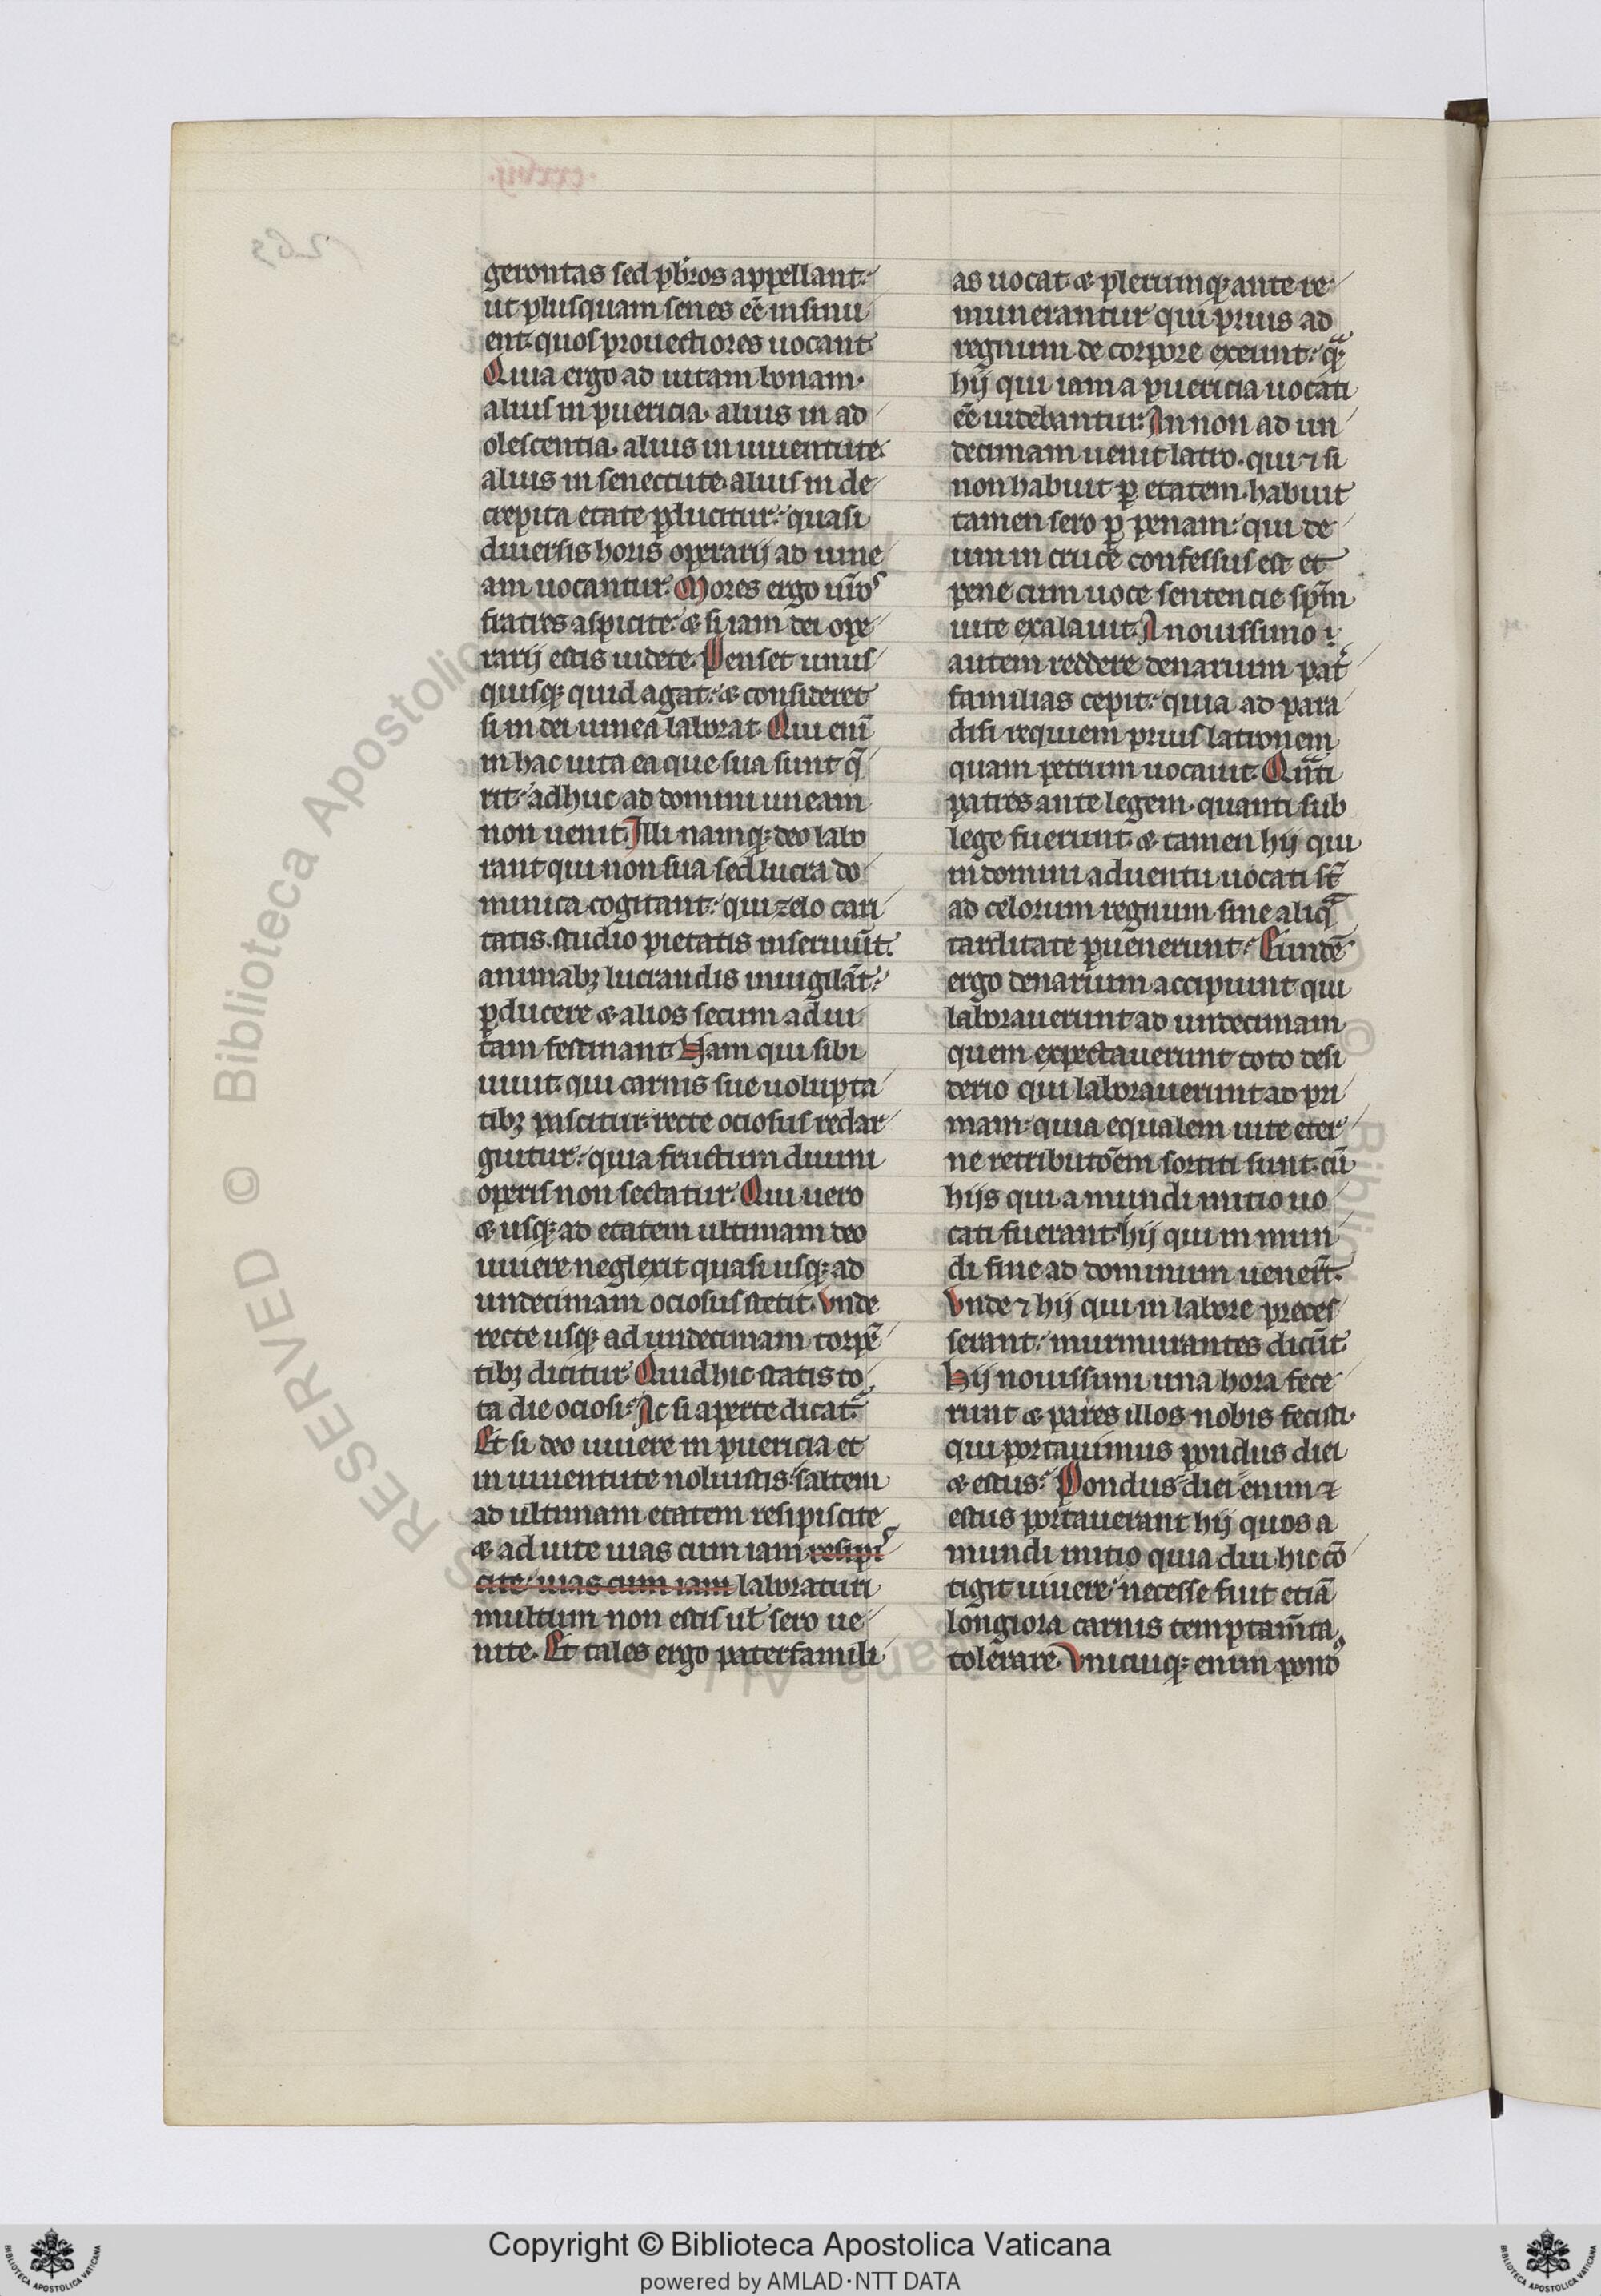 gerontas sed pb̅ros appellant:
ut plusquam senes ee̅ insinu
ent. quos prouectiores uocant.
Quia ergo ad uitam bonam.
alius in puericia. alius in ad
olescentia. alius in iuuentute.
alius in senectute. alius in de
crepita etate ꝑducitur: quasi
diuersis horis operarij ad uine
am uocantur. Mores ergo ur̅os
fratres aspicite: & si iam dei ope
rarij estis uidete. Penset unus
quisqꝫ quid agat: & consideret
si in dei uinea laborat. Qui eni̅
in hac uita ea que sua sunt q̅
rit: adhuc ad domini uineam
non uenit. Illi namqꝫ deo labo
rant qui non sua sed lucra do
minica cogitant: qui zelo cari
tatis. studio pietatis inseruiu̅t.
animabꝫ lucrandis inuigila̅t:
ꝑducere & alios secum ad ui
tam festinant. Nam qui sibi
uiuit. qui carnis sue uolupta
tibꝫ pascitur. recte ociosus redar
guitur: quia fructum diuini
operis non sectatur. Qui uero
& usqꝫ ad etatem ultimam deo
uiuere neglexit quasi usqꝫ ad
undecimam ociosus stetit. Vnde
recte usqꝫ ad undecimam torpe̅
tibꝫ dicitur. Quid hic statis to
ta die ociosi: Ac si aperte dicat.
Et si deo uiuere in puericia et
in iuuentute noluistis. saltem
ad ultimam etatem resipiscite
& ad uite uias cum iam resipi
cite uias cum iam laboraturi
multum non estis ul̅ sero ue
nite. Et tales ergo paterfamili
as uocat. & plerumqꝫ ante re
munerantur qui prius ad
regnum de corpore exeunt: qᵃ̅
hij qui iam a puericia uocati
ee̅ uidebantur. An non ad un
decimam uenit latro. qui ⁊ si
non habuit ꝑ etatem. habuit
tamen sero ꝑ penam: qui de
um in cruce confessus est et
pene cum uoce sentencie sp̅m
uite exalauit. A nouissimo
autem reddere denarium pat̉
familias cepit: quia ad para
disi requiem prius latronem
quam petrum uocauit. Qn̅ti
patres ante legem. quanti sub
lege fuerunt. & tamen hij qui
in domini aduentu uocati st̅
ad celorum regnum sine aliqᵃ
tarditate ꝑuenerunt: Eunde̅
ergo denarium accipiunt qui
laborauerunt ad undecimam
quem expectauerunt toto desi
derio qui laborauerunt ad pri
mam: quia equalem uite eter
ne retributo̅em sortiti sunt. cu̅
hijs qui a mundi initio uo
cati fuerant. hij qui in mun
di fine ad dominum uener̅t.
Vnde ⁊ hij qui in labore preces
serant: murmurantes dicu̅t.
Hij nouissimi una hora fece
runt & pares illos nobis fecisti.
qui portauimus pondus diei
& estus. Pondus diei enim ⁊
estus portauerant hij quos a
mundi initio quia diu hic co̅
tigit uiuere: necesse fuit etia̅
longiora carnis temptam̅ta
tolerare. Vnicuiqꝫ enim pondꝰ
Copyright © Biblioteca Apostolica Vaticana
powered by AMLAD·NTT DATA